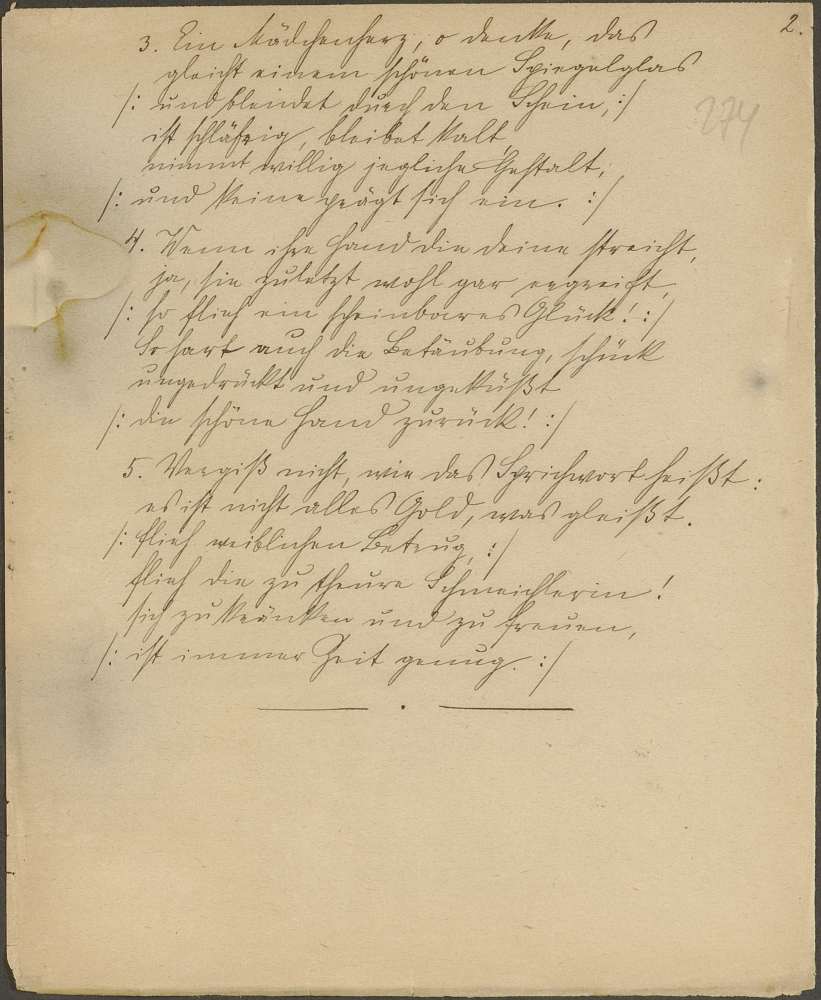 2.
3. Ein Mädchenherz, o denke, das
gleicht einem schönen Spiegelglas
/: und blendet durch den Schein, :/
274
ist schläfrig, bleibet kalt,
nimmt willig jegliche Gestalt,
/: und keine prägt sich ein. :/
4. Wenn ihre Hand die deine streicht,
ja, sie zuletzt wohl gar ergreift,
/: so flieh ein scheinbares Glück! :/
So hart auch die Betäubung, schück
ungedrückt und ungeküßt
/: die schöne Hand zurück! :/
5. Vergiß nicht, wie das Sprichwort heißt:
es ist nicht alles Gold, was gleißt.
/: flieh weiblichen Betrug, :/
flieh die zu theure Schmeichlerin!
sich zu kränken und zu freuen,
/: ist immer Zeit genug. :/